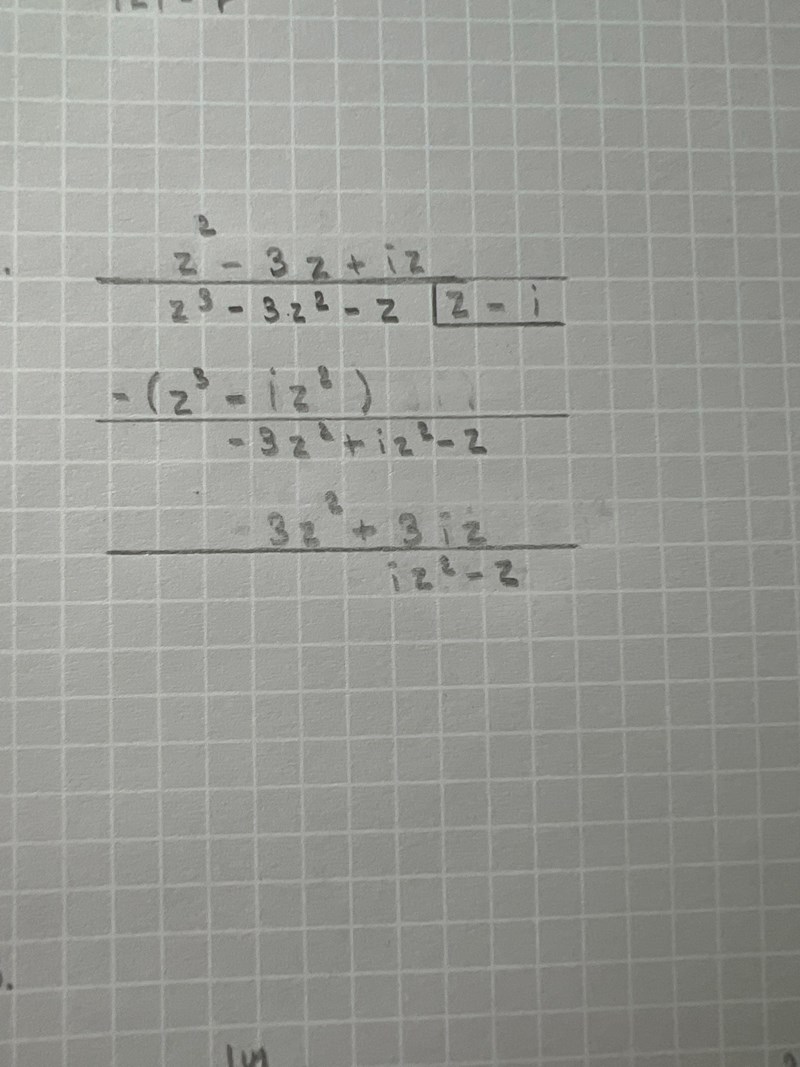 z² - 3z + iz
z³ - 3z² - z z - i
-(z³ - iz²)
-3z² + iz² - z
3z² + 3iz
iz² - z